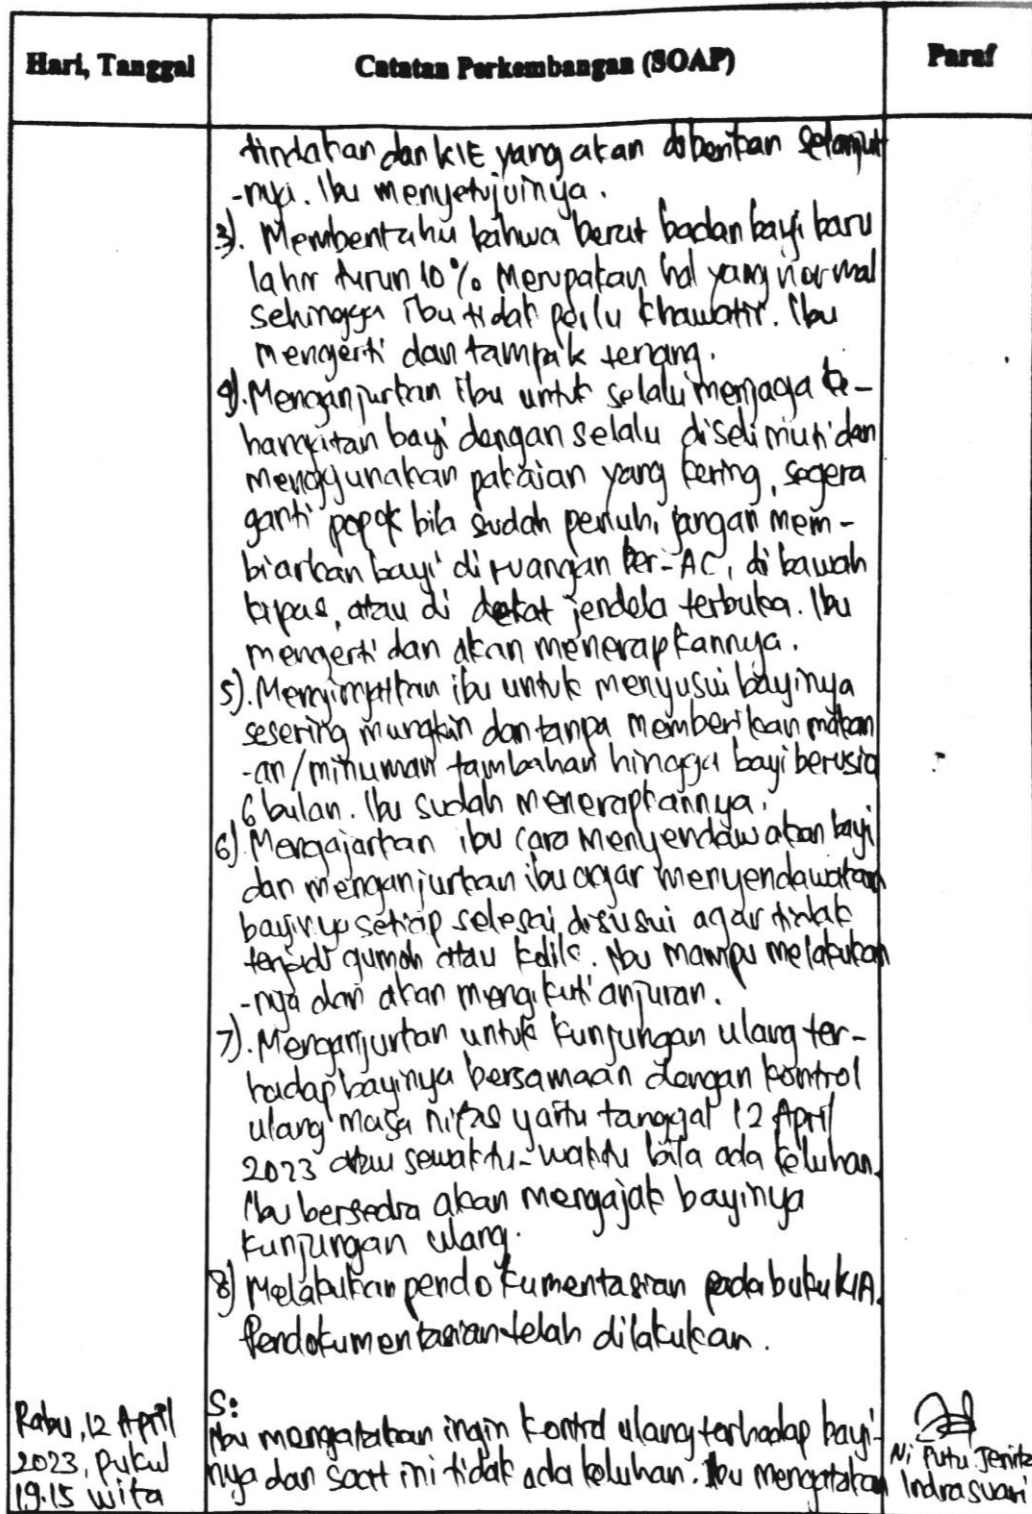 Hari, Tanggal
Catatan Perkembangan (SOAP)
Paraf
tindakan dan KIE yang akan diberikan selanjut
-nya. Ibu menyetujuinya.
3). Memberitahu bahwa berat badan bayi baru
lahir turun 10% Merupakan hal yang normal
sehingga ibu tidak perlu khawatir. Ibu
mengerti dan tampak tenang.
4). Menganjurkan ibu untuk selalu menjaga ke-
hangatan bayi dengan selalu diselimuti dan
menggunakan pakaian yang kering, segera
ganti popok bila sudah penuh, jangan mem-
biarkan bayi di ruangan ber-AC, di bawah
kipas, atau di dekat jendela terbuka. Ibu
mengerti dan akan menerapkannya.
5). Mengingatkan ibu untuk menyusui bayinya
sesering mungkin dan tanpa memberikan makan
-an/minuman tambahan hingga bayi berusia
6 bulan. Ibu sudah menerapkannya.
6) Mengajarkan ibu cara menyendawakan bayi
dan menganjurkan ibu agar menyendawakan
bayinya setiap selesai disusui agar tidak
terjadi gumoh atau kolik. Ibu mampu melakukan
-nya dan akan mengikuti anjuran.
7). Menganjurkan untuk kunjungan ulang ter-
hadap bayinya bersamaan dengan kontrol
ulang masa nifas yaitu tanggal 12 April
2023 atau sewaktu-waktu bila ada keluhan.
Ibu bersedia akan mengajak bayinya
kunjungan ulang.
8) Melakukan pendokumentasian pada buku KIA.
Pendokumentasian telah dilakukan.
Rabu, 12 April
2023, pukul
19.15 wita
S:
Ibu mengatakan ingin kontrol ulang terhadap bayi-
nya dan saat ini tidak ada keluhan. Ibu mengatakan
Ni Putu Jenita
Indrasuari